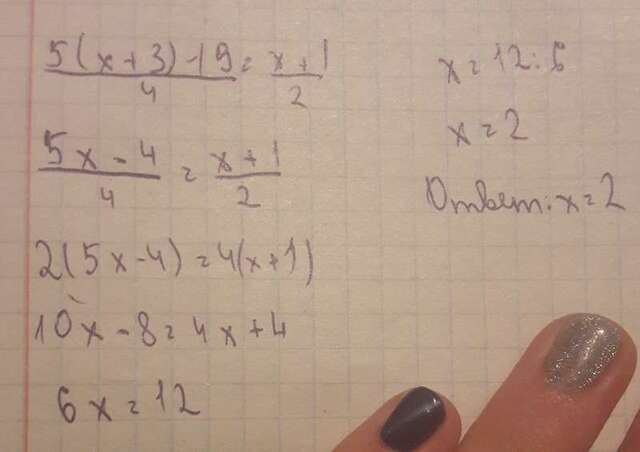 5(x+3)-19/4 = x+1/2
5x-4/4 = x+1/2
2(5x-4)=4(x+1)
10x-8=4x+4
6x=12
x=12:6
x=2
Ответ: x=2